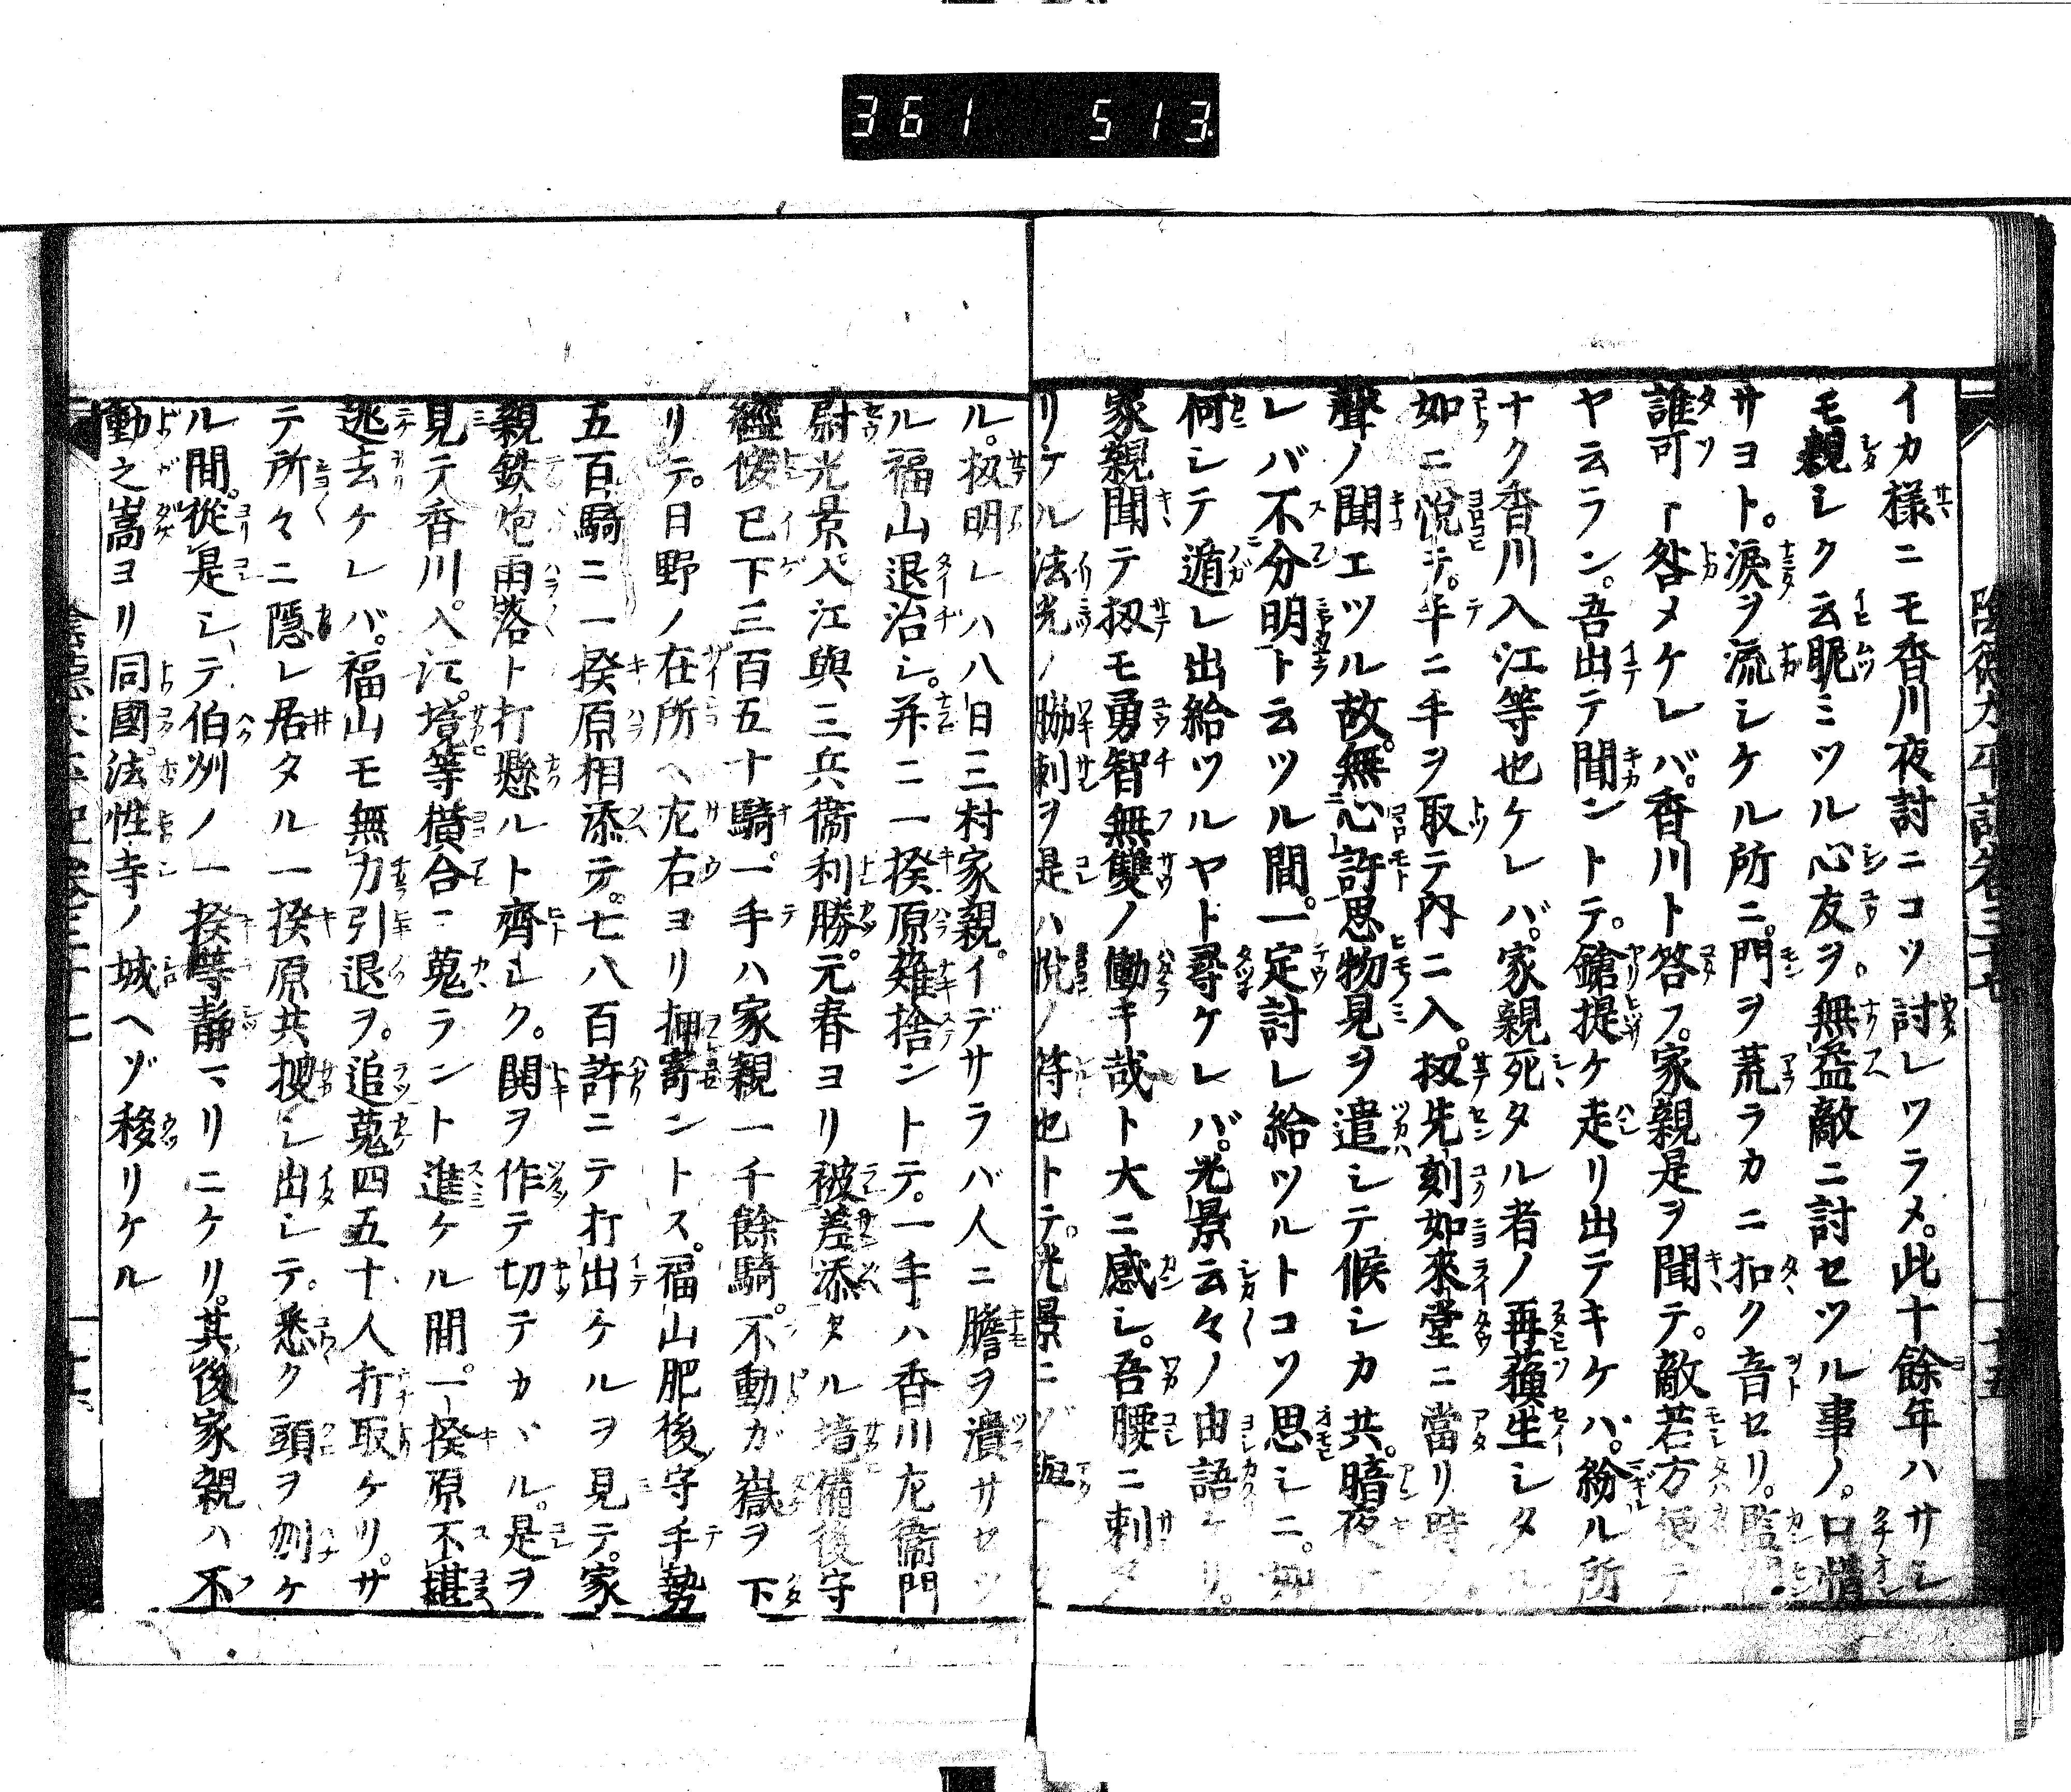 361 513
イカ様ニモ香川夜討ニコソ討レツラメ。此十餘年ハサシ
モ親シク云昵ミツル心友ヲ。無益敵ニ討セツル事ノ。口惜
サヨト。涙ヲ流シケル所ニ。門ヲ荒ラカニ扣ク音セリ。
誰可ト咎メケレバ。香川ト答フ。家親是ヲ聞テ。敵若方便テ
ヤ云ラン。吾出テ聞ントテ。鎗提ケ走リ出テキケバ。紛ル所
ナク香川入江等也ケレバ。家親死タル者ノ再蘓生シタル
如ニ悦テ。手ニ手ヲ取テ内ニ入。扨先刻如來堂ニ當リ時ノ
聲ノ聞エツル故。無心許思物見ヲ遣シテ候シカ共。暗夜
レバ不分明ト云ツル間。一定討レ給ツルトコソ思シニ。如
何シテ遁レ出給ツルヤト尋ケレバ。光景云々ノ由語ケリ。
家親聞テ扨モ勇智無雙ノ働キ哉ト大ニ感シ。吾腰ニ刺タ
リケル法光ノ脇刺ヲ是ハ悦ノ符也トテ。光景ニゾ
ル。扨明レハ八日三村家親。イデサラバ人ニ膽ヲ潰サセツ
ル福山退治シ。并ニ一揆原薙捨ントテ。一手ハ香川左衞門
尉光景入江與三兵衞利勝。元春ヨリ被差添タル境備後守
經俊已下三百五十騎。一手ハ家親一千餘騎。不動ガ嶽ヲ下
リテ。日野ノ在所ヘ左右ヨリ押寄ントス。福山肥後守手勢
五百騎ニ一揆原相添テ。七八百許ニテ打出ケルヲ見テ。家
親鉄炮雨落ト打懸ルト齊シク。閧ヲ作テ切テカヽル。是ヲ
見テ香川。入江。境等横合ニ蒐ラント進ケル間。一揆原不堪
逃去ケレバ。福山モ無力引退ヲ。追蒐四五十人打取ケリ。サ
テ所々ニ隱レ居タル一揆原共搜シ出シテ。悉ク頭ヲ刎ケ
ル間。從是シテ伯州ノ一揆等靜マリニケリ。其後家親ハ不
動之嵩ヨリ同國法性寺ノ城ヘゾ移リケル